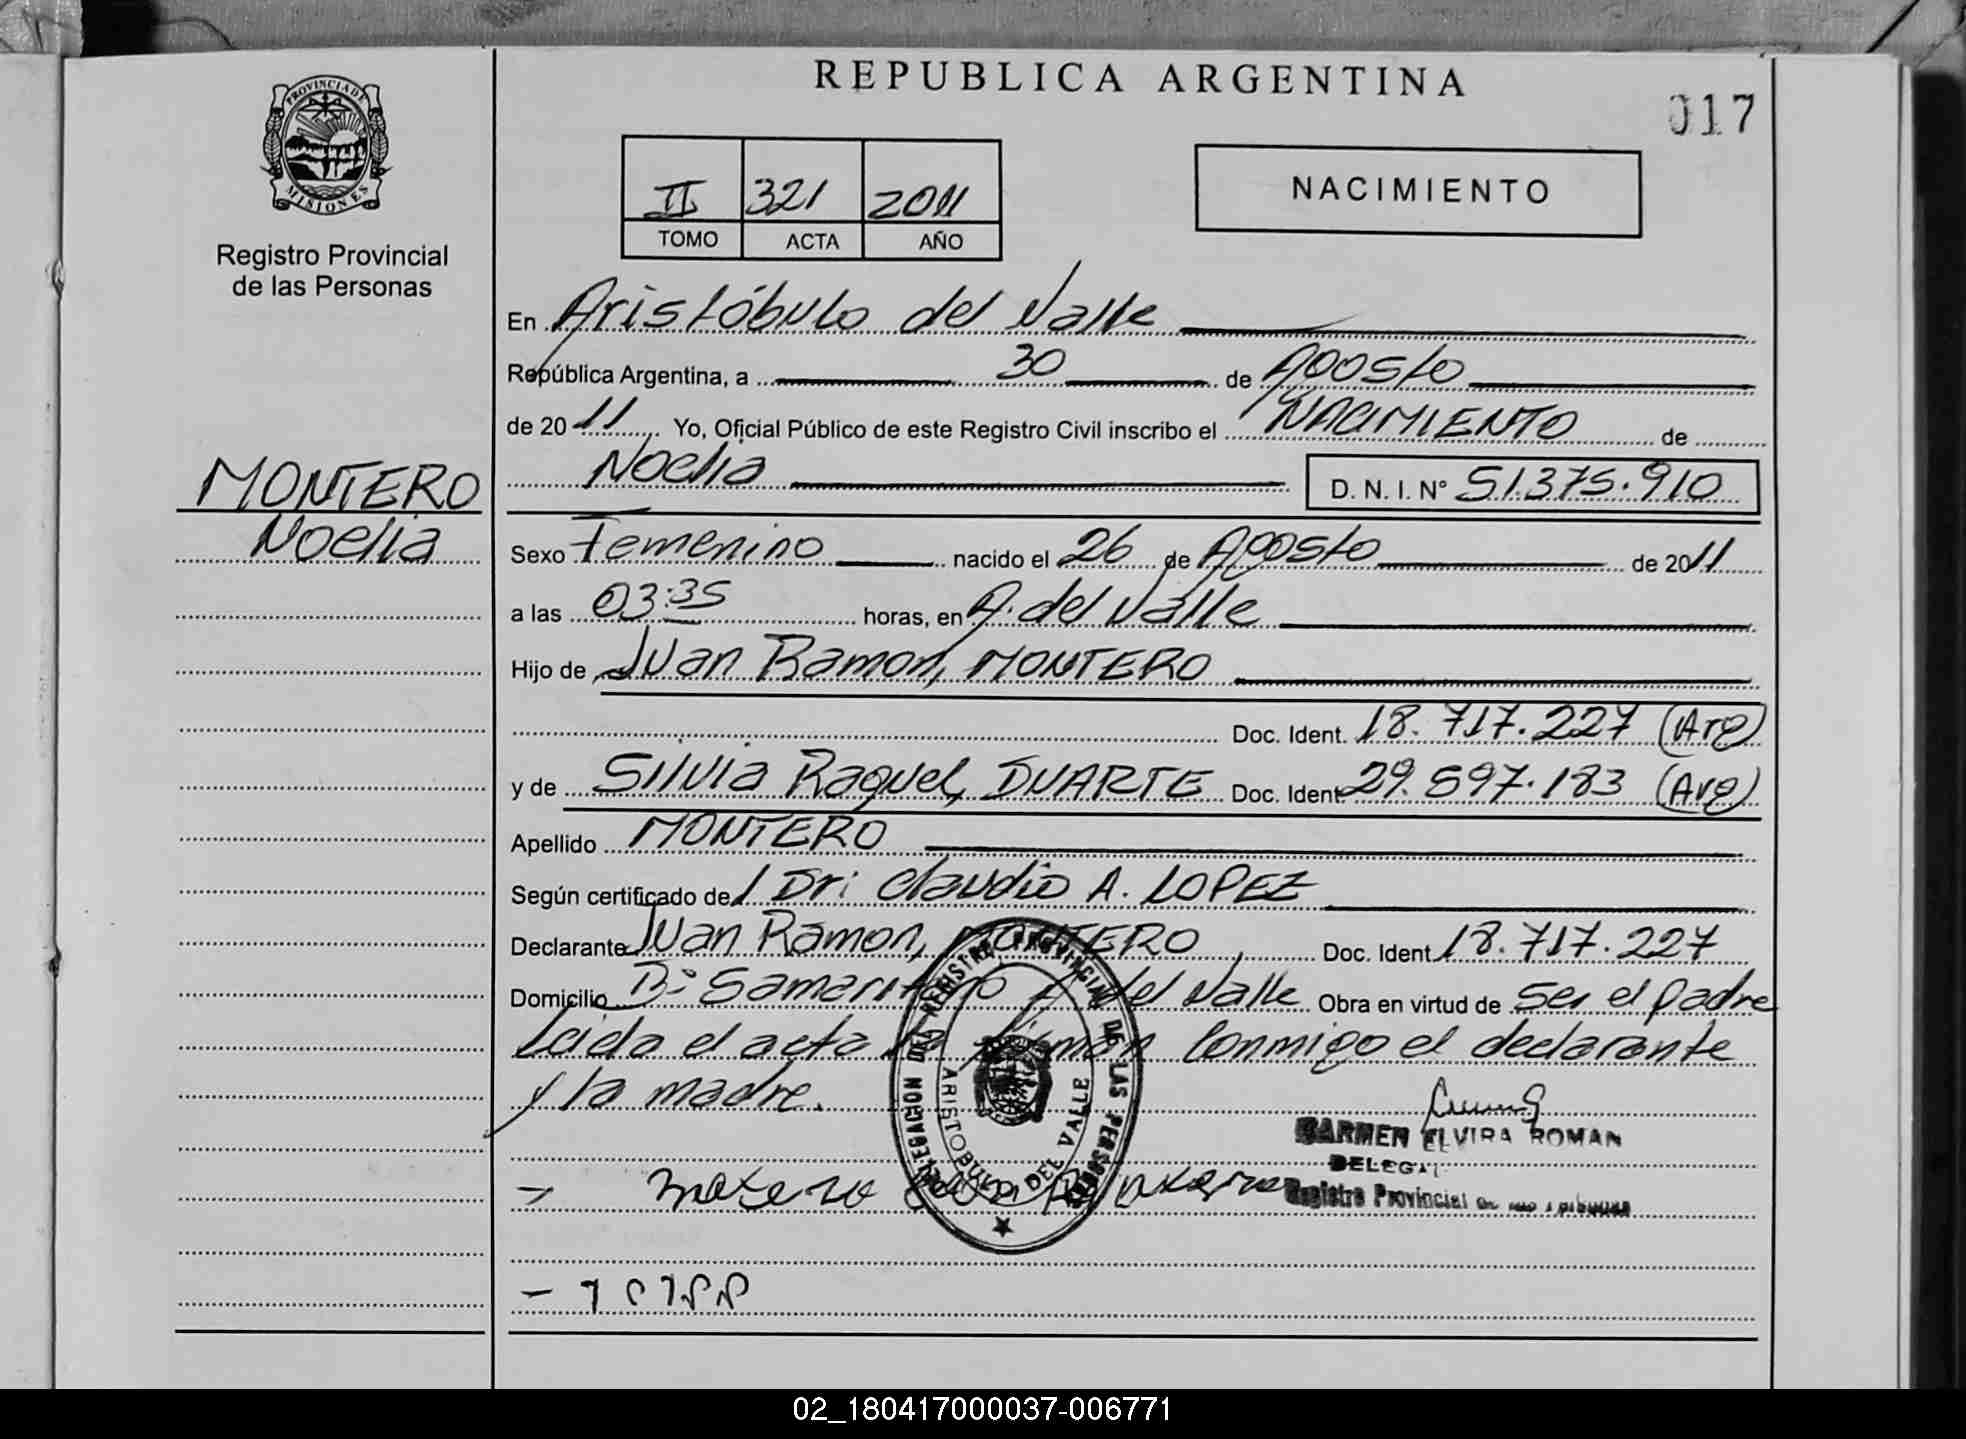 REPUBLICA ARGENTINA
017
PROVINCIA DE
MISIONES
Registro Provincial
de las Personas
II 321 2011
TOMO ACTA AÑO
NACIMIENTO
En Aristóbulo del Valle
República Argentina, a 30 de Agosto
de 2011 Yo, Oficial Público de este Registro Civil inscribo el NACIMIENTO de
MONTERO
Noelia
Noelia D. N. I. N° 51.375.910
Sexo Femenino nacido el 26 de Agosto de 2011
a las 03:35 horas, en A. del Valle
Hijo de Juan Ramon, MONTERO
Doc. Ident. 18.717.227 (Arg)
y de Silvia Raquel, DUARTE Doc. Ident. 29.897.183 (Arg)
Apellido MONTERO
Según certificado de Dr: Claudio A. LOPEZ
Declarante Juan Ramon, MONTERO Doc. Ident. 18.717.227
Domicilio B° Samaritano A. del Valle Obra en virtud de ser el padre
Leida el acta la firman conmigo el declarante
y la madre.
DELEGACION DEL REGISTRO PROVINCIAL DE LAS PERSONAS
ARISTOBULO DEL VALLE
CARMEN ELVIRA ROMAN
Registro Provincial
02_180417000037-006771